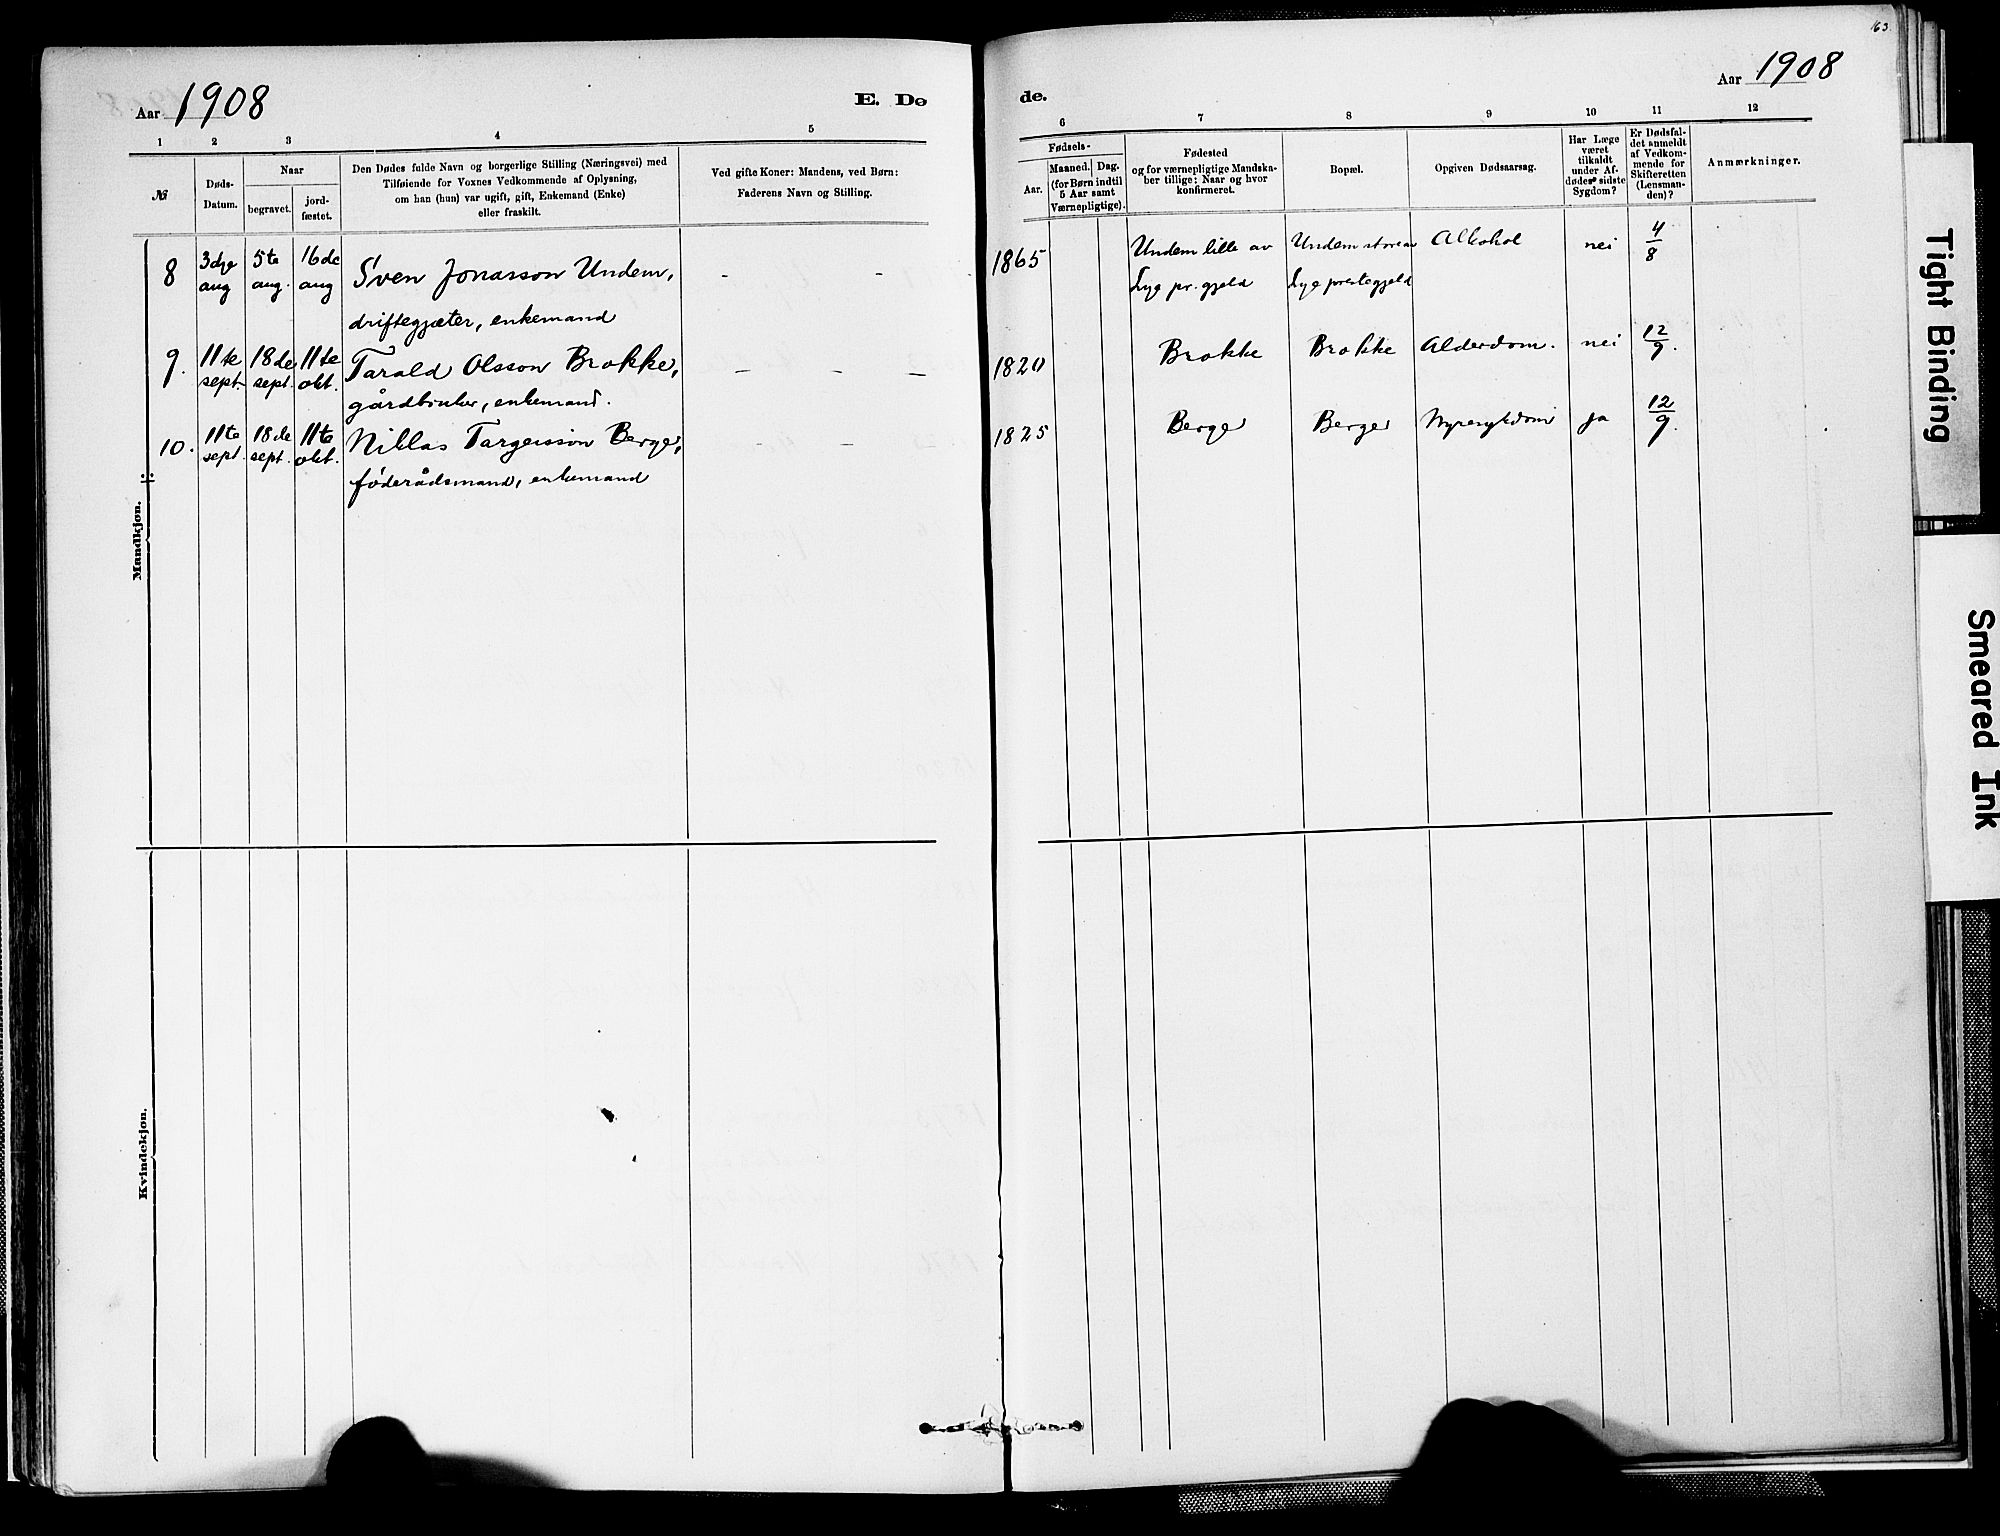 Aar 1908
E. Dø
1
2
3
4
5
№
Døds-
Datum.
Naar
begravet.
jord-
fæstet.
Den Dødes fulde Navn og borgerlige Stilling (Næringsvei) med
Tilføiende for Voxnes Vedkommende af Oplysning,
om han (hun) var ugift, gift, Enkemand (Enke)
eller fraskilt.
Ved gifte Koner: Mandens, ved Børn:
Faderens Navn og Stilling.
Mandkjøn.
8
3dje
aug
5te
aug.
16de
aug
Sven Jonasson Undem,
driftegjæter, enkemand
-
-
9.
11te
sept.
18de
sept.
11te
okt.
Tarald Olsson Brokke,
gårdbruker, enkemand.
-
-
-
10.
11te
sept.
18de
sept.
11te
okt.
Niklas Targeisson Berge,
føderådsmand, enkemand
Kvindekjøn.
163.
de.
Aar 1908
6
7
8
9
10
11
12
Fødsels-
Aar.
Maaned.
Dag.
(for Børn indtil
5 Aar samt
Værnepligtige).
Fødested
og for værnepligtige Mandska-
ber tillige: Naar og hvor
konfirmeret.
Bopæl.
Opgiven Dødsaarsag.
Har Læge
været
tilkaldt
under Af-
dødes sidste
Sygdom?
Er Dødsfal-
det anmeldt
af Vedkom-
mende for
Skifteretten
(Lensman-
den)?
Anmærkninger.
1865
Undem lille av
Lyg pr. gjeld
Undem store av
Lyg prestegjeld
Alkohol
nei
4/8
1820
Brokke
Brokke
Alderdom.
nei
12/9.
1825
Berge
Berge
Nyresykdom
ja
12/9.
Tight Binding
Smeared Ink